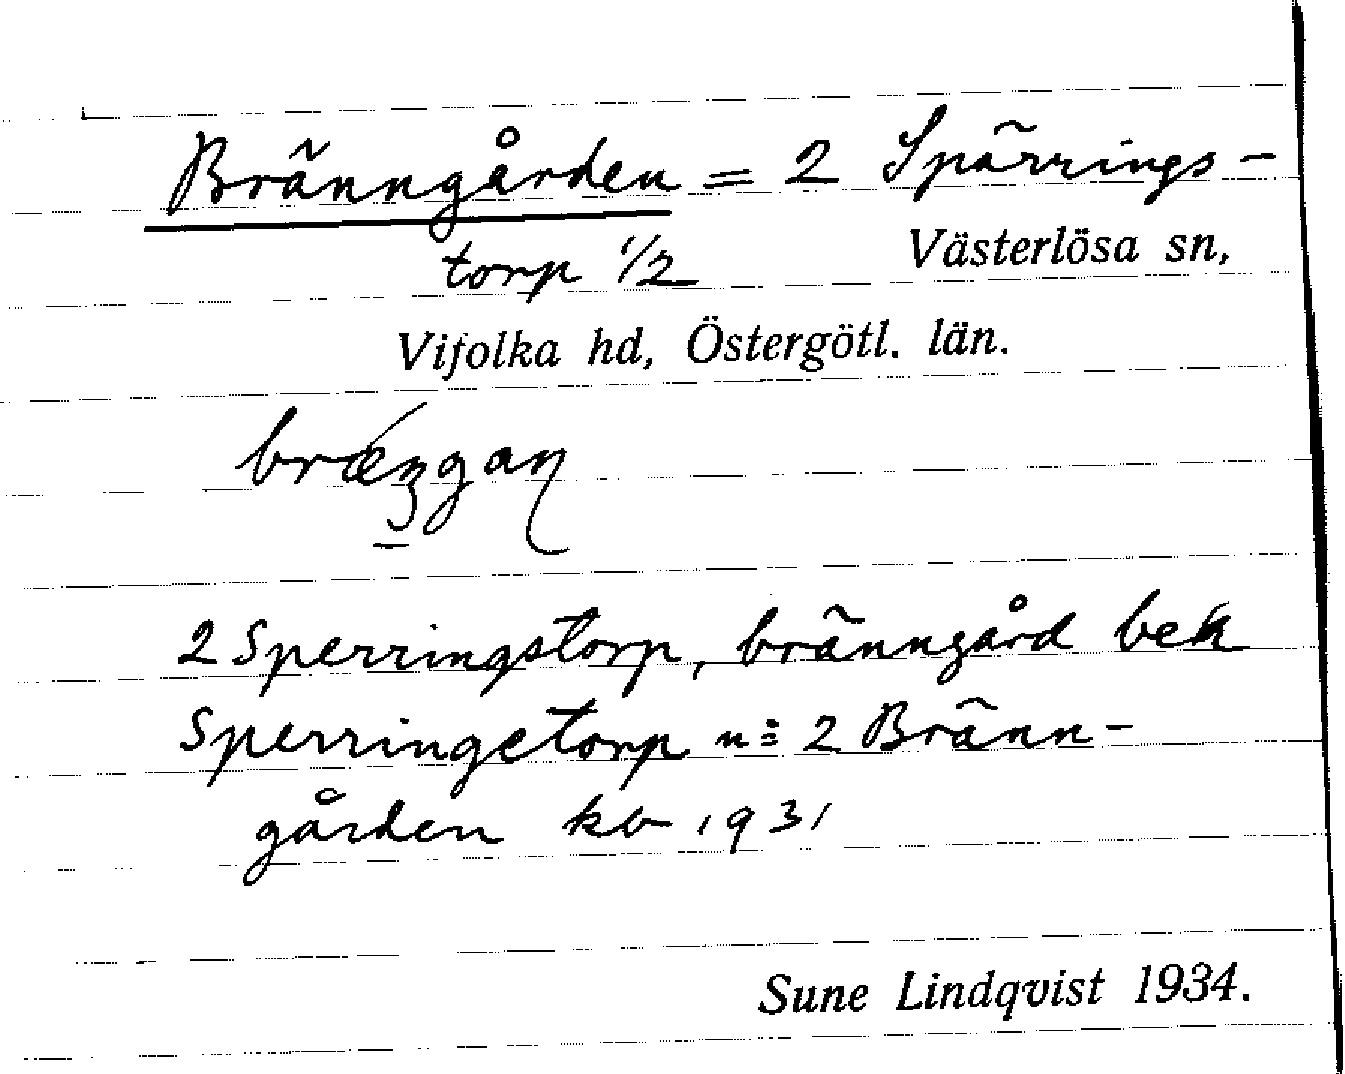 Bränngården = 2 Spärrings-
torp 1/2 Västerlösa sn,
Vifolka hd, Östergötl. län.
2 Sperringstorp, bränngård bek
Sperringetorp n:2 2 Bränn-
gården kb 1931
Sune Lindqvist 1934.